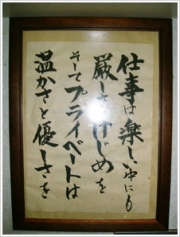 仕事は楽しい中にも
厳しさけじめを
そしてプライベートは
温かさと優しさを